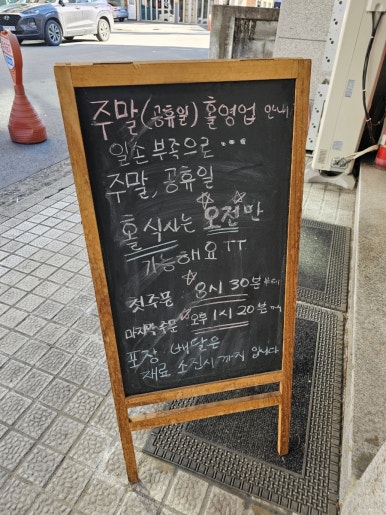 주말(공휴일) 홀영업 안내
일손 부족으로 ...
주말, 공휴일
홀 식사는 오전만
가능해요 ㅜㅜ
첫주문 8시 30분부터
마지막주문 오후 1시 20분까지
포장 배달은
재료 소진시까지 입니다